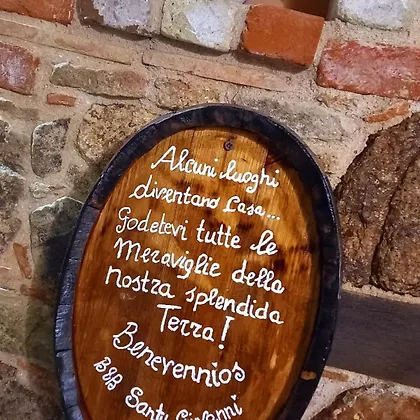 Alcuni luoghi
diventano Casa...
Godetevi tutte le
Meraviglie della
nostra splendida
Terra!
Benevennios
B&B Santu Giovanni